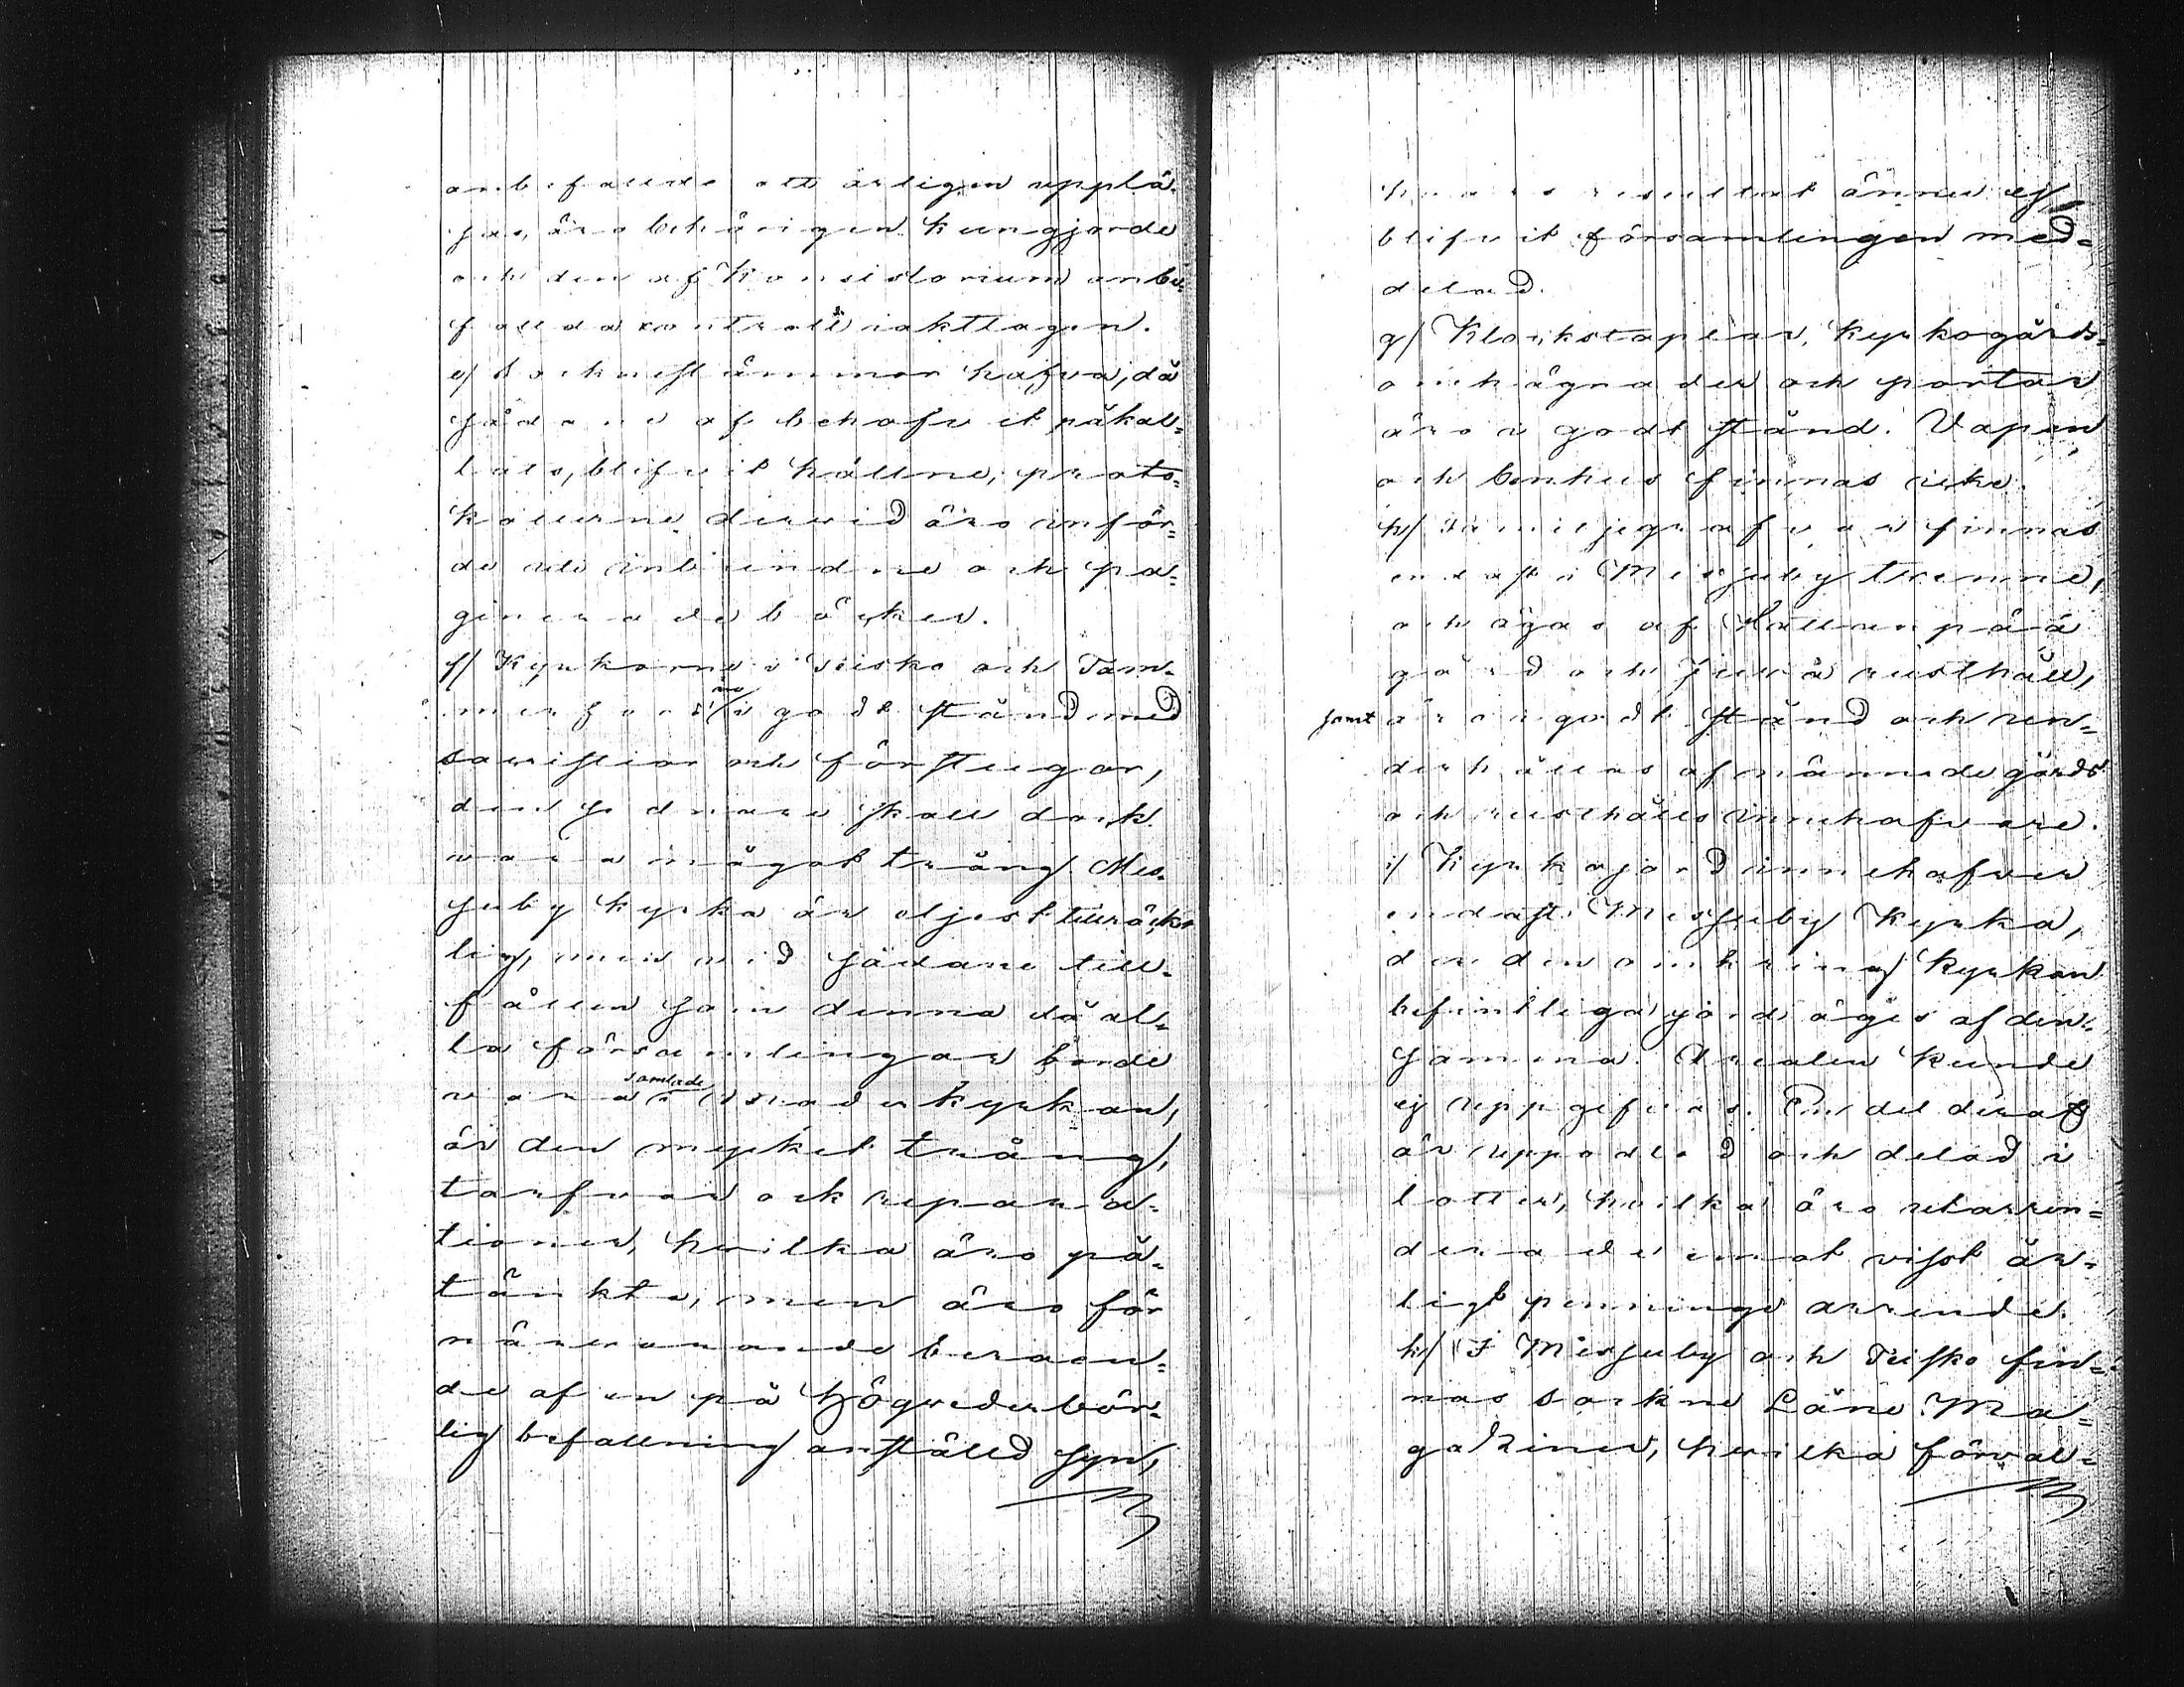 anbefallde att årligen upplä-
sas, äro behörigen kungjorde
och den af Konsistorium anbe-
fallda kontroll iakttagen.
e/ Sockneståmmor hafva, då
sådane af behofvet påkal=
lats, blifvit hållne; proto=
kollerne dervid äro inför=
de uti inbundne och pa=
ginerade böcker.
f/ Kyrkorne i Teisko och Tam-
merfors äro i godt stånd med
sacristior och förstugor,
den sednare skall dock
vara något trång. Mes-
suby kyrka är eljest tillräcke
lig, men vid sådane till-
fällen som denna då al-
la församlingar borde
vara samlade i moderkyrkan,
är den mycket trång,
tarfvar ock repara-
tioner, hvilka äro på-
tänkte, men äro för
närvarande beroen=
de af en på Högvederbör-
lig befallning anställd syn,
hvars resultat ännu ej
blifvit församlingen med=
delad.
g/ Klockstaplar, kyrkogårds=
omhägnader och portar
äro i godt stånd. Vapen
och benhus finnas icke.
h/ Familjegrafvar finnas
endast i Messuby tvenne,
och ägas af Hallanpää
gård och Juva rusthåll,
samt äro i godt stånd och un=
derhållas af nämnde gårds
och rusthålls innehafvare.
i/ Kyrkojord innehafver
endast Messuby Kyrka,
der den omkring Kyrkan
befintliga jord äges af den-
samma. Arealen kunde
ej uppgifvas. En del deraf
är uppodlad och delad i
lotter, hvilka äro utarren=
derade emot visst år=
ligt pennings arrende.
k/ I Messuby och Teisko fin=
nas Sockne Låne Ma=
gaziner, hvilka förval=